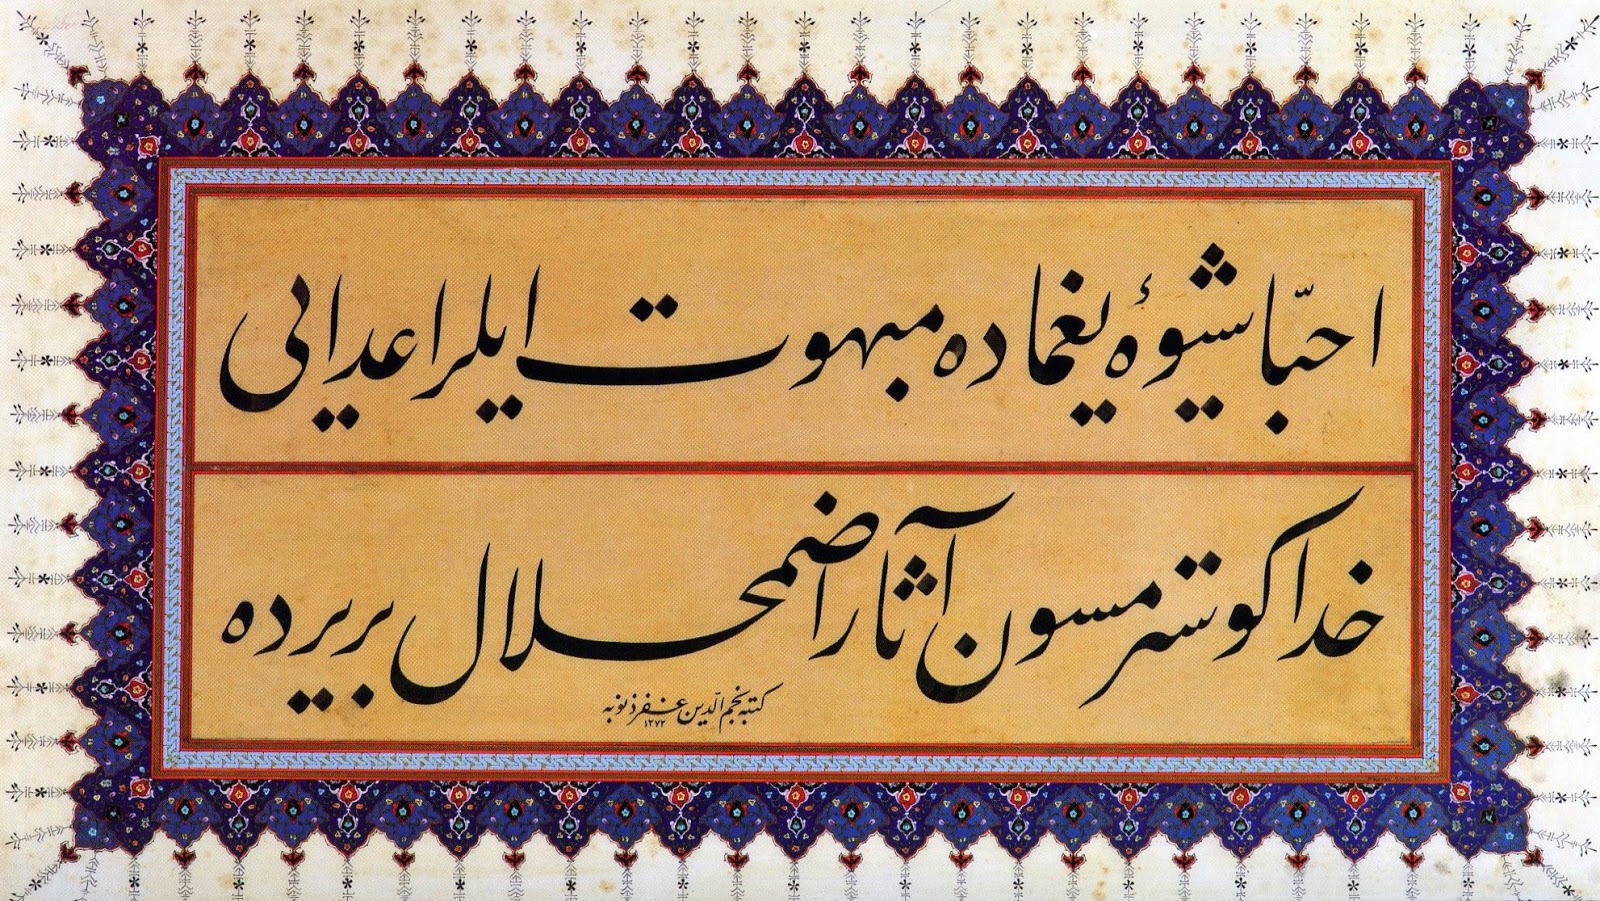 احبّا شیوۀ یغماده مبهوت ایلر اعدایی
خدا کوسترمسون آثار اضمحلال بر یرده
کتبه نجم الدین غفر ذنوبه
١٣٧٢